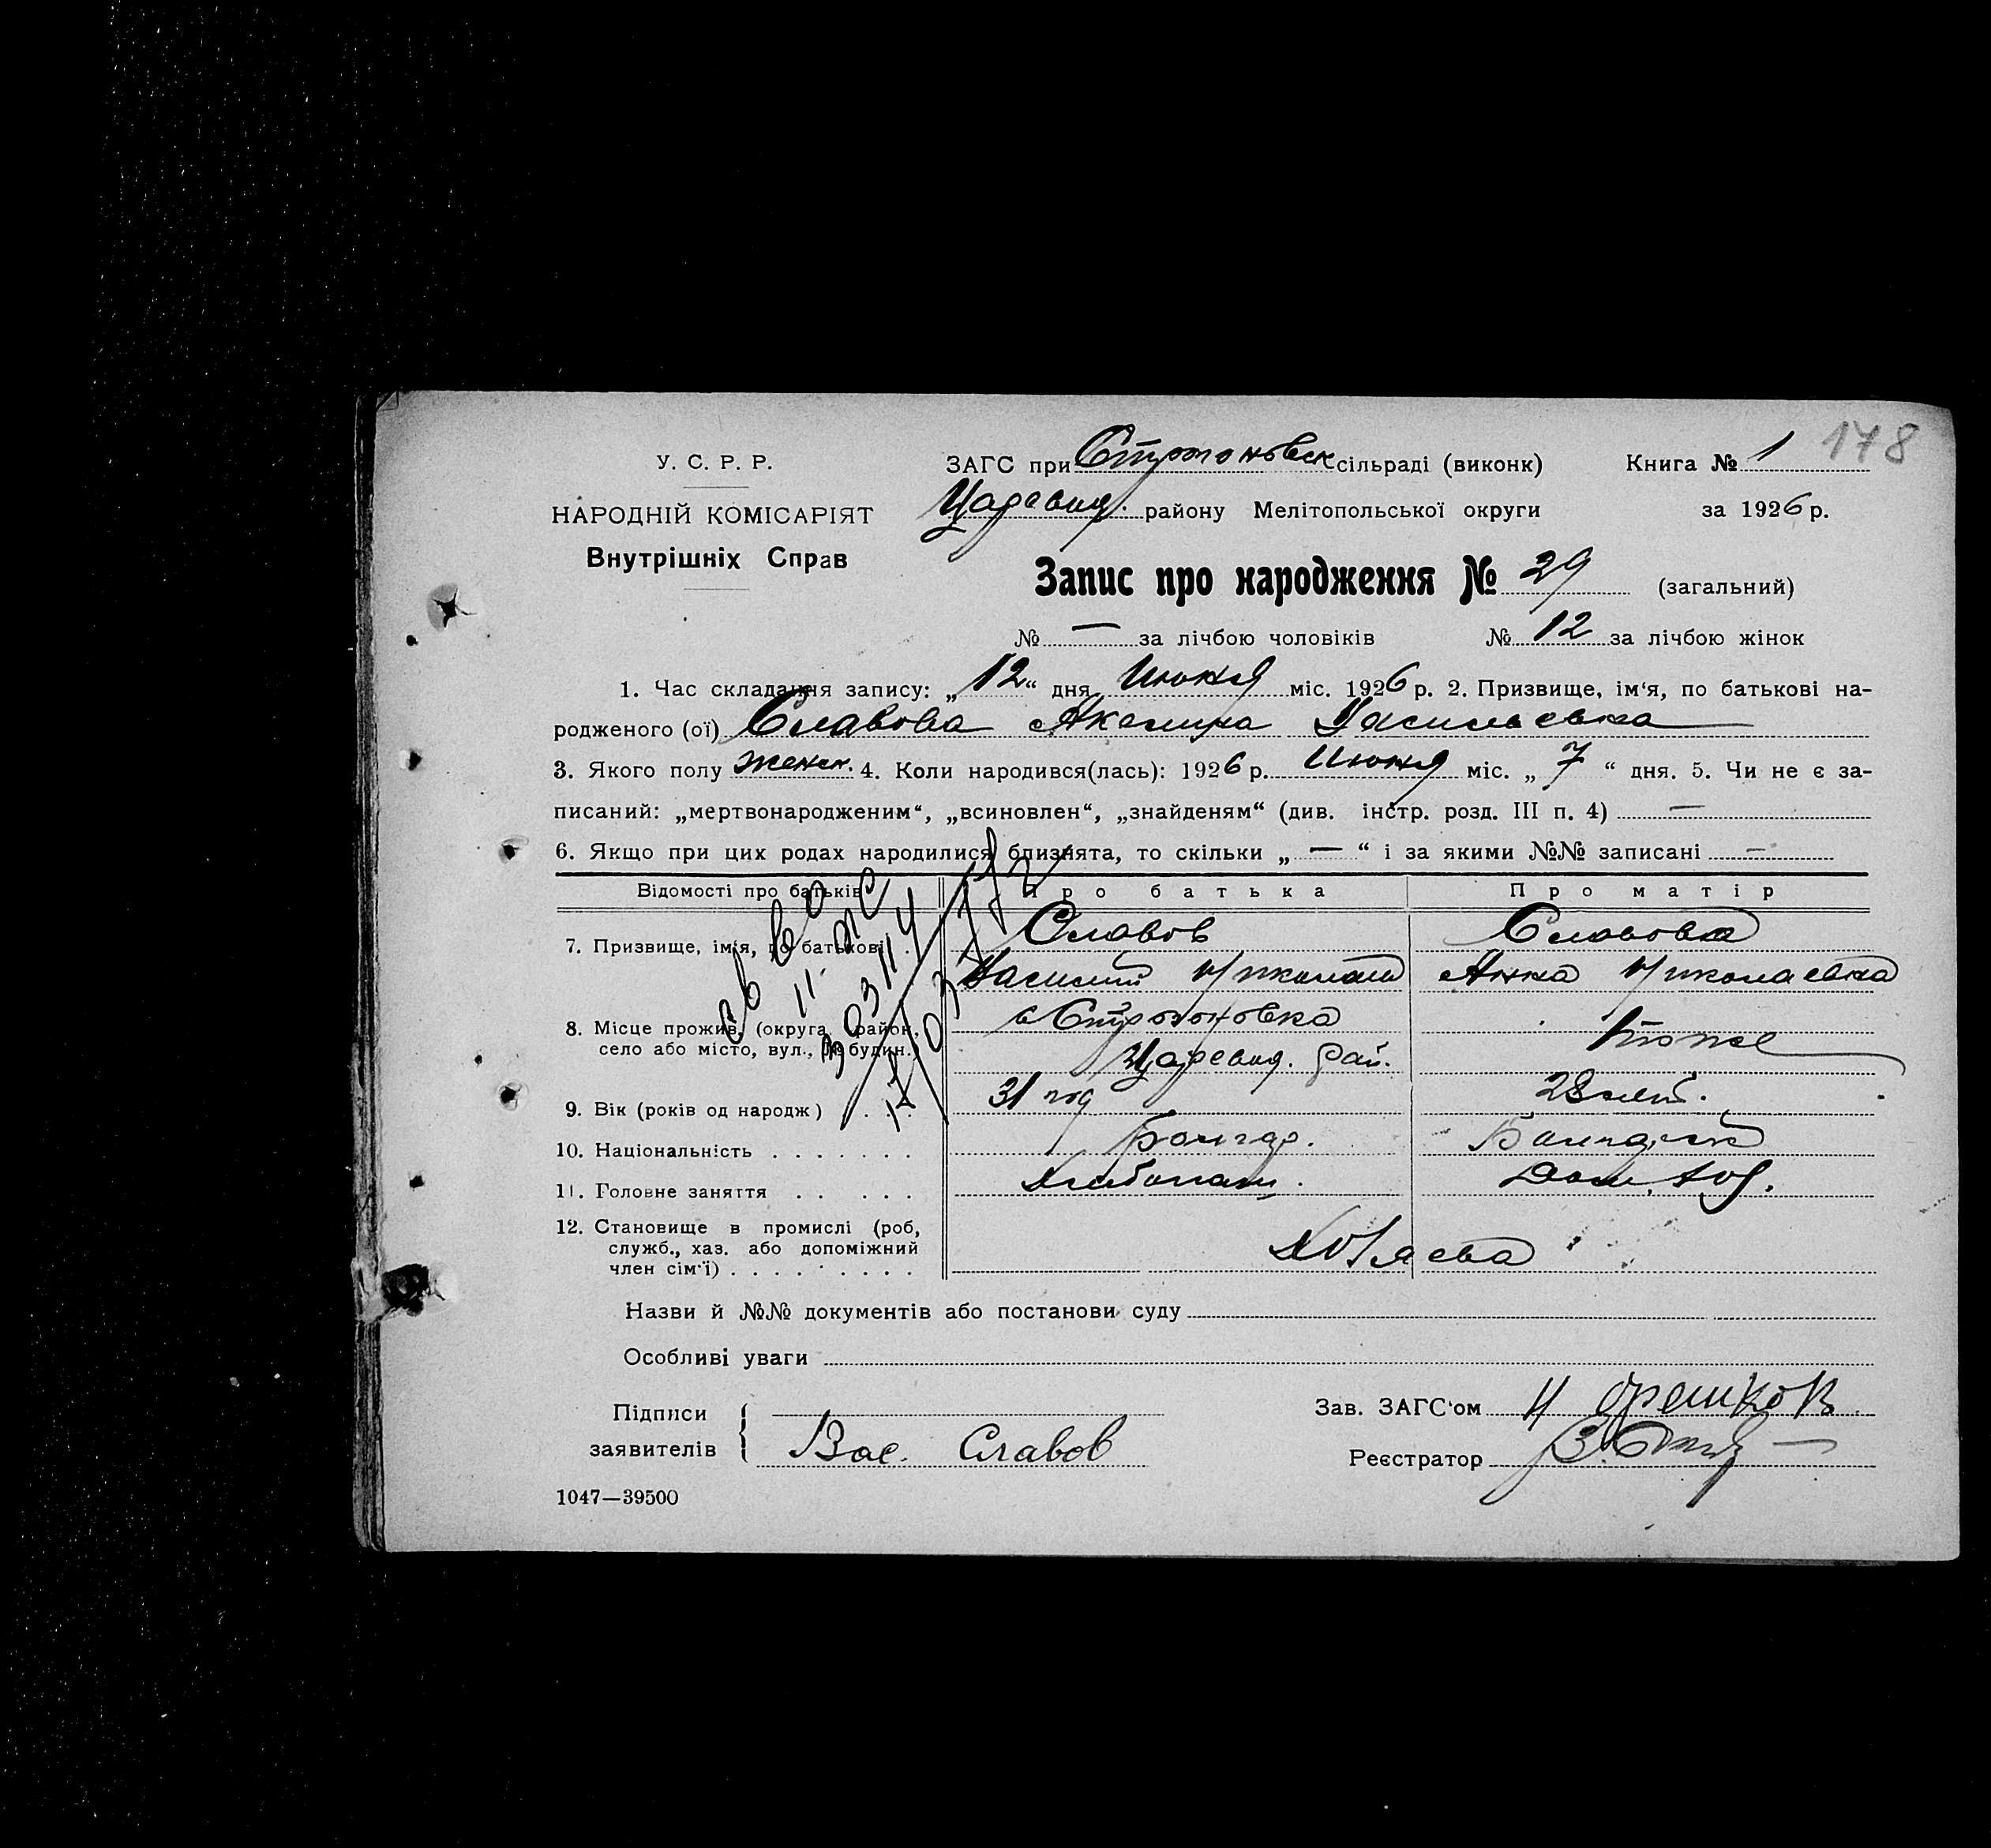 178
У. С. Р. Р.
НАРОДНІЙ КОМІСАРІЯТ
Внутрішніх Справ
ЗАГС при Строгоновск сільраді (виконк) Книга № 1
Царевод. району Мелітопольської округи за 1926 р.
Запис про народження № 29 (загальний)
№ — за лічбою чоловіків № 12 за лічбою жінок
1. Час складання запису: „12“ дня Июня міс. 1926 р. 2. Призвище, ім‘я, по батькові на-
родженого (ої) Славова Акелина Васильевна
3. Якого полу женск. 4. Коли народився(лась): 1926 р. Июня міс. „7“ дня. 5. Чи не є за-
писаний: „мертвонародженим“, „всиновлен“, „знайденям“ (див. інстр. розд. III п. 4) —
6. Якщо при цих родах народилися близнята, то скільки „—“ і за якими №№ записані —
Відомості про батьків Про батька Про матір
7. Призвище, ім‘я, по батькові . Славов Славова
Василий Николаев Анна Николаевна
8. Місце прожив. (округа, район, с Строгоновка тоже
село або місто, вул., № будин. Царевод. рай.
9. Вік (років од народж) . . . 31 год 28 лет.
10. Національність . . . . . . . Болгар. Болгарк
11. Головне заняття . . . . . Хлебопаш. Дом. хоз.
12. Становище в промислі (роб,
служб., хаз. або допоміжний
член сім‘ї) . . . . . . . . . Хозяева
Назви й №№ документів або постанови суду
Особливі уваги
Підписи
заявителів Вас. Славов
Зав. ЗАГС‘ом И Орешков
Реєстратор
1047—39500